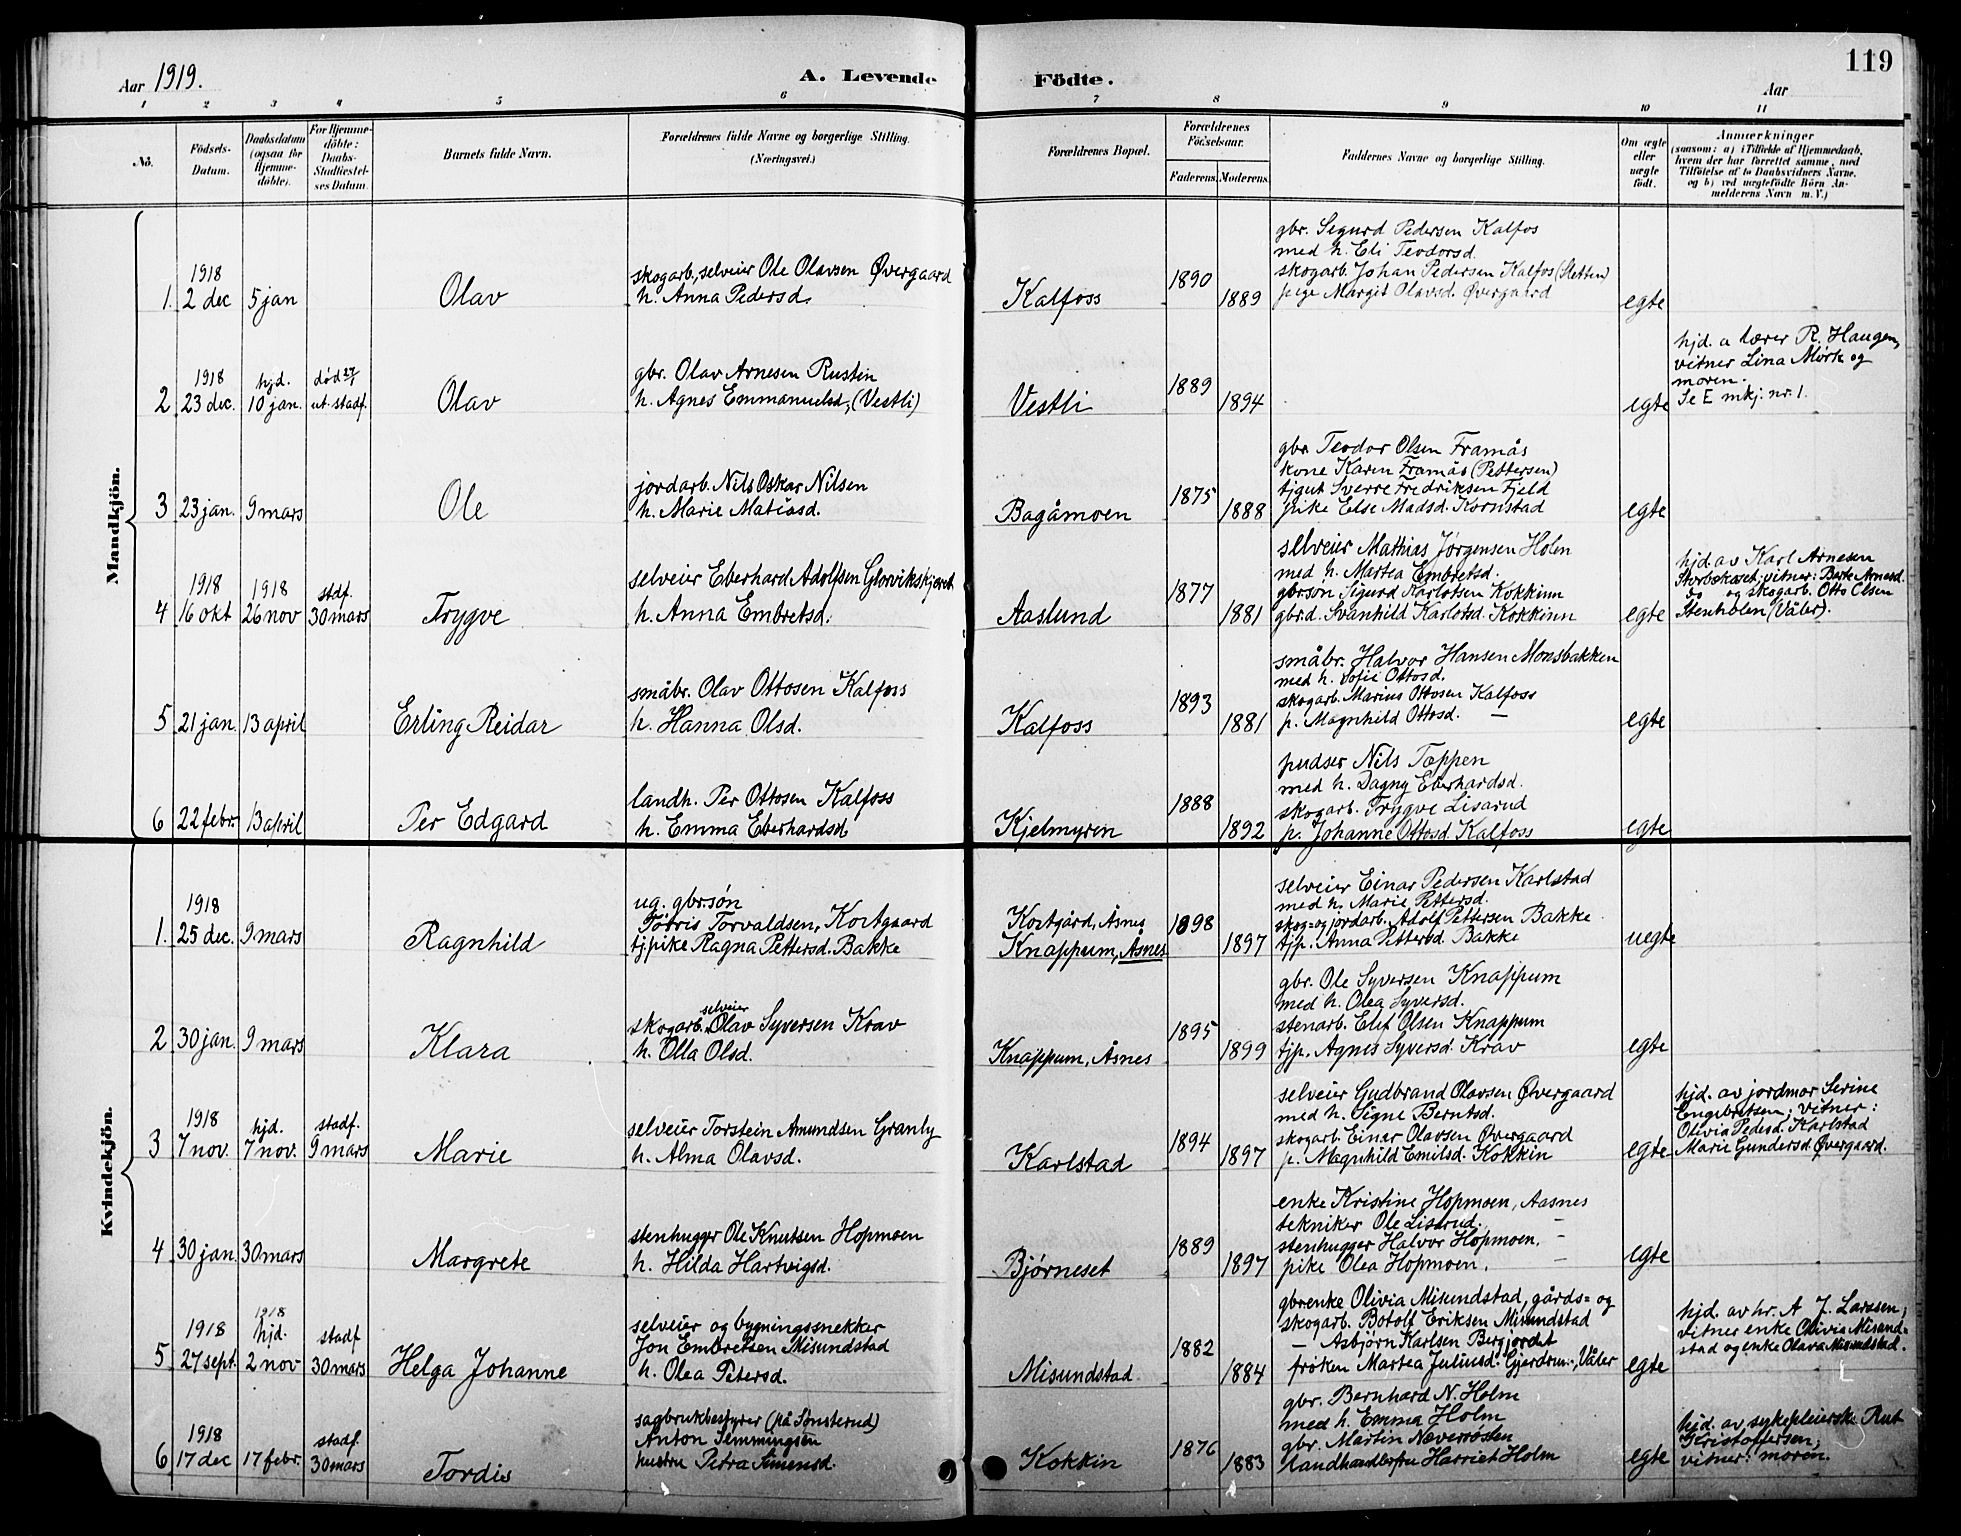 119
Aar 1919.
A. Levende Födte.
Aar
1 2 3 4 5 6 7 8 9 10 11
No.
Födsels-
Datum.
Daabsdatum
(ogsaa for
Hjemme-
döbte).
For Hjemme-
döbte:
Daabs-
Stadfæstel-
ses Datum.
Barnets fulde Navn.
Forældrenes fulde Navne og borgerlige Stilling.
(Næringsvei.)
Forældrenes Bopæl.
Forældrenes
Födselsaar.
Faderens. Moderens.
Faddernes Navne og borgerlige Stilling.
Om ægte
eller
uægte
födt.
Anmærkninger
(saasom: a) i Tilfælde af Hjemmedaab,
hvem der har forrettet samme, med
Tilföielse af to Daabsvidners Navne.
og b) ved uægtefödte Börn An-
melderens Navn m. V.)
Mandkjön.
1918
1. 2 dec 5 jan
Olav
skogarb., selveier Ole Olavsen Øvergaard
h. Anna Pedersd.
Kalfoss
1890
1889
gbr. Sigurd Pedersen Kalfos
med h. Eli Teodorsd.
skogarb. Johan Pedersen Kalfos (Sletten)
pige Margit Olavsd. Øvergaard
egte
1918 hjd. død 27/1
2 23 dec. 10 jan. ut. stadf.
Olav
gbr. Olav Arnesen Rustin
h. Agnes Emmanuelsd, (Vestli)
Vestli
1889
1894
egte
hjd. a lærer R. Haugen,
vitner Lina Mørk og
moren.
Se E mkj. nr. 1.
3 23 jan. 9 mars
Ole
jordarb. Nils Oskar Nilsen
h. Marie Matiasd.
Bagåmoen
1875
1888
gbr. Teodor Olsen Framås
kone Karen Framås (Pettersen)
tjgut Sverre Fredriksen Fjeld
pike Else Madsd. Kornstad
egte
1918 1918 stdf.
4 16 okt 26 nov 30 mars
Trygve
selveier Eberhard Adolfsen Glorvikskjæret
h. Anna Embretsd.
Aaslund
1877
1881
selveier Mathias Jørgensen Holm
med h. Martea Embretsd.
gbrsøn Sigurd Karlotsen Kokkinn
gbr.d. Svanhild Karlotsd. Kokkinn
egte
hjd. av Karl Arnesen
vitner: Berte Arnesd.
do og skogarb. Otto Olsen
Stenholen (Våler).
5 21 jan. 13 april
Erling Reidar
småbr. Olav Ottosen Kalfoss
h. Hanna Olsd.
Kalfoss
1893
1881
småbr. Halvor Hansen Monsbakken
med h. Sofie Ottosd.
skogarb. Marius Ottosen Kalfoss
p. Magnhild Ottosd. —
egte
6 22 febr. 13 april
Per Edgard
landh. Per Ottosen Kalfoss
h. Emma Eberhardsd
Kjelmyren
1888
1892
pudser Nils Tappen
med h. Dagny Eberhardsd.
skogarb. Trygve Lisarud
p. Johanne Ottosd Kalfoss
egte
Kvindekjön.
1918
1. 25 dec. 9 mars
Ragnhild
ug. gbrsøn
Torris Torvaldsen, Kortgaard
tjpike Ragna Pettersd. Bakke
Kortgård, Åsnes
Knappum, Åsnes
1898
1897
selveier Einar Pedersen Karlstad
med h. Marie Pettersd.
skog= og jordarb. Adolf Pettersen Bakke
tjp. Anna Pettersd Bakke
uegte
2 30 jan. 9 mars
Klara
selveier
skogarb. Olav Syversen Krav
h. Olla Olsd.
Knappum, Åsnes
1895
1899
gbr. Ole Syversen Knappum
med h. Olea Syversd.
stenarb. Elef Olsen Knappum
tjp. Agnes Syversd. Krav
egte
1918 hjd. stadf.
3 7 nov. 7 nov. 9 mars
Marie
selveier Torstein Amundsen Granly
h. Alma Olavsd.
Karlstad
1894
1897
selveier Gudbrand Olavsen Øvergaard
med h. Signe Berntsd.
skogarb. Einar Olavsen Øvergaard
p. Magnhild Emilsd. Kokkin
egte
hjd. av jordmor Serine
Engebretsen; vitner:
Olivia Pedersd. Karlstad
Marie Gundersd. Øvergaard.
4 30 jan. 30 mars
Margrete
stenhugger Ole Knutsen Hopmoen
h. Hilda Hartvigsd.
Bjørneset
1889
1897
enke Kristine Hopmoen, Aasnes
tekniker Ole Lisarud. —
stenhugger Halvor Hopmoen. —
pike Olea Hopmoen. —
egte
1918
1918 hjd. stadf
5 27 sept. 2 nov 30 mars
Helga Johanne
selveier og bygningssnekker
Jon Embretsen Misundstad
h. Olea Petersd.
Misundstad
1882
1884
gbrenke Olivia Misundstad, gårds= og
skogarb. Botolf Eriksen Misundstad
— Asbjørn Karlsen Bergjordet
frøken Martea Juliusd. Gjerdrum, Våler
egte
hjd. av hr. A J. Larssen,
vitner enke Olivia Misund=
stad og enke Olava Misundstad.
1918 stadf.
6 17 dec 17 febr. 30 mars
Tordis
sagbruksbestyrer (på Sønsterud)
Anton Semmingsen
hustru Petra Simensd.
Kokkin
1876
1883
gbr. Bernhard N. Holm
med h. Emma Holm
gbr. Martin Næveråsen
landhandlerfru Harriet Holm
egte
hjd. av sykepleierske Rut
Kristoffersen,
vitner: moren.